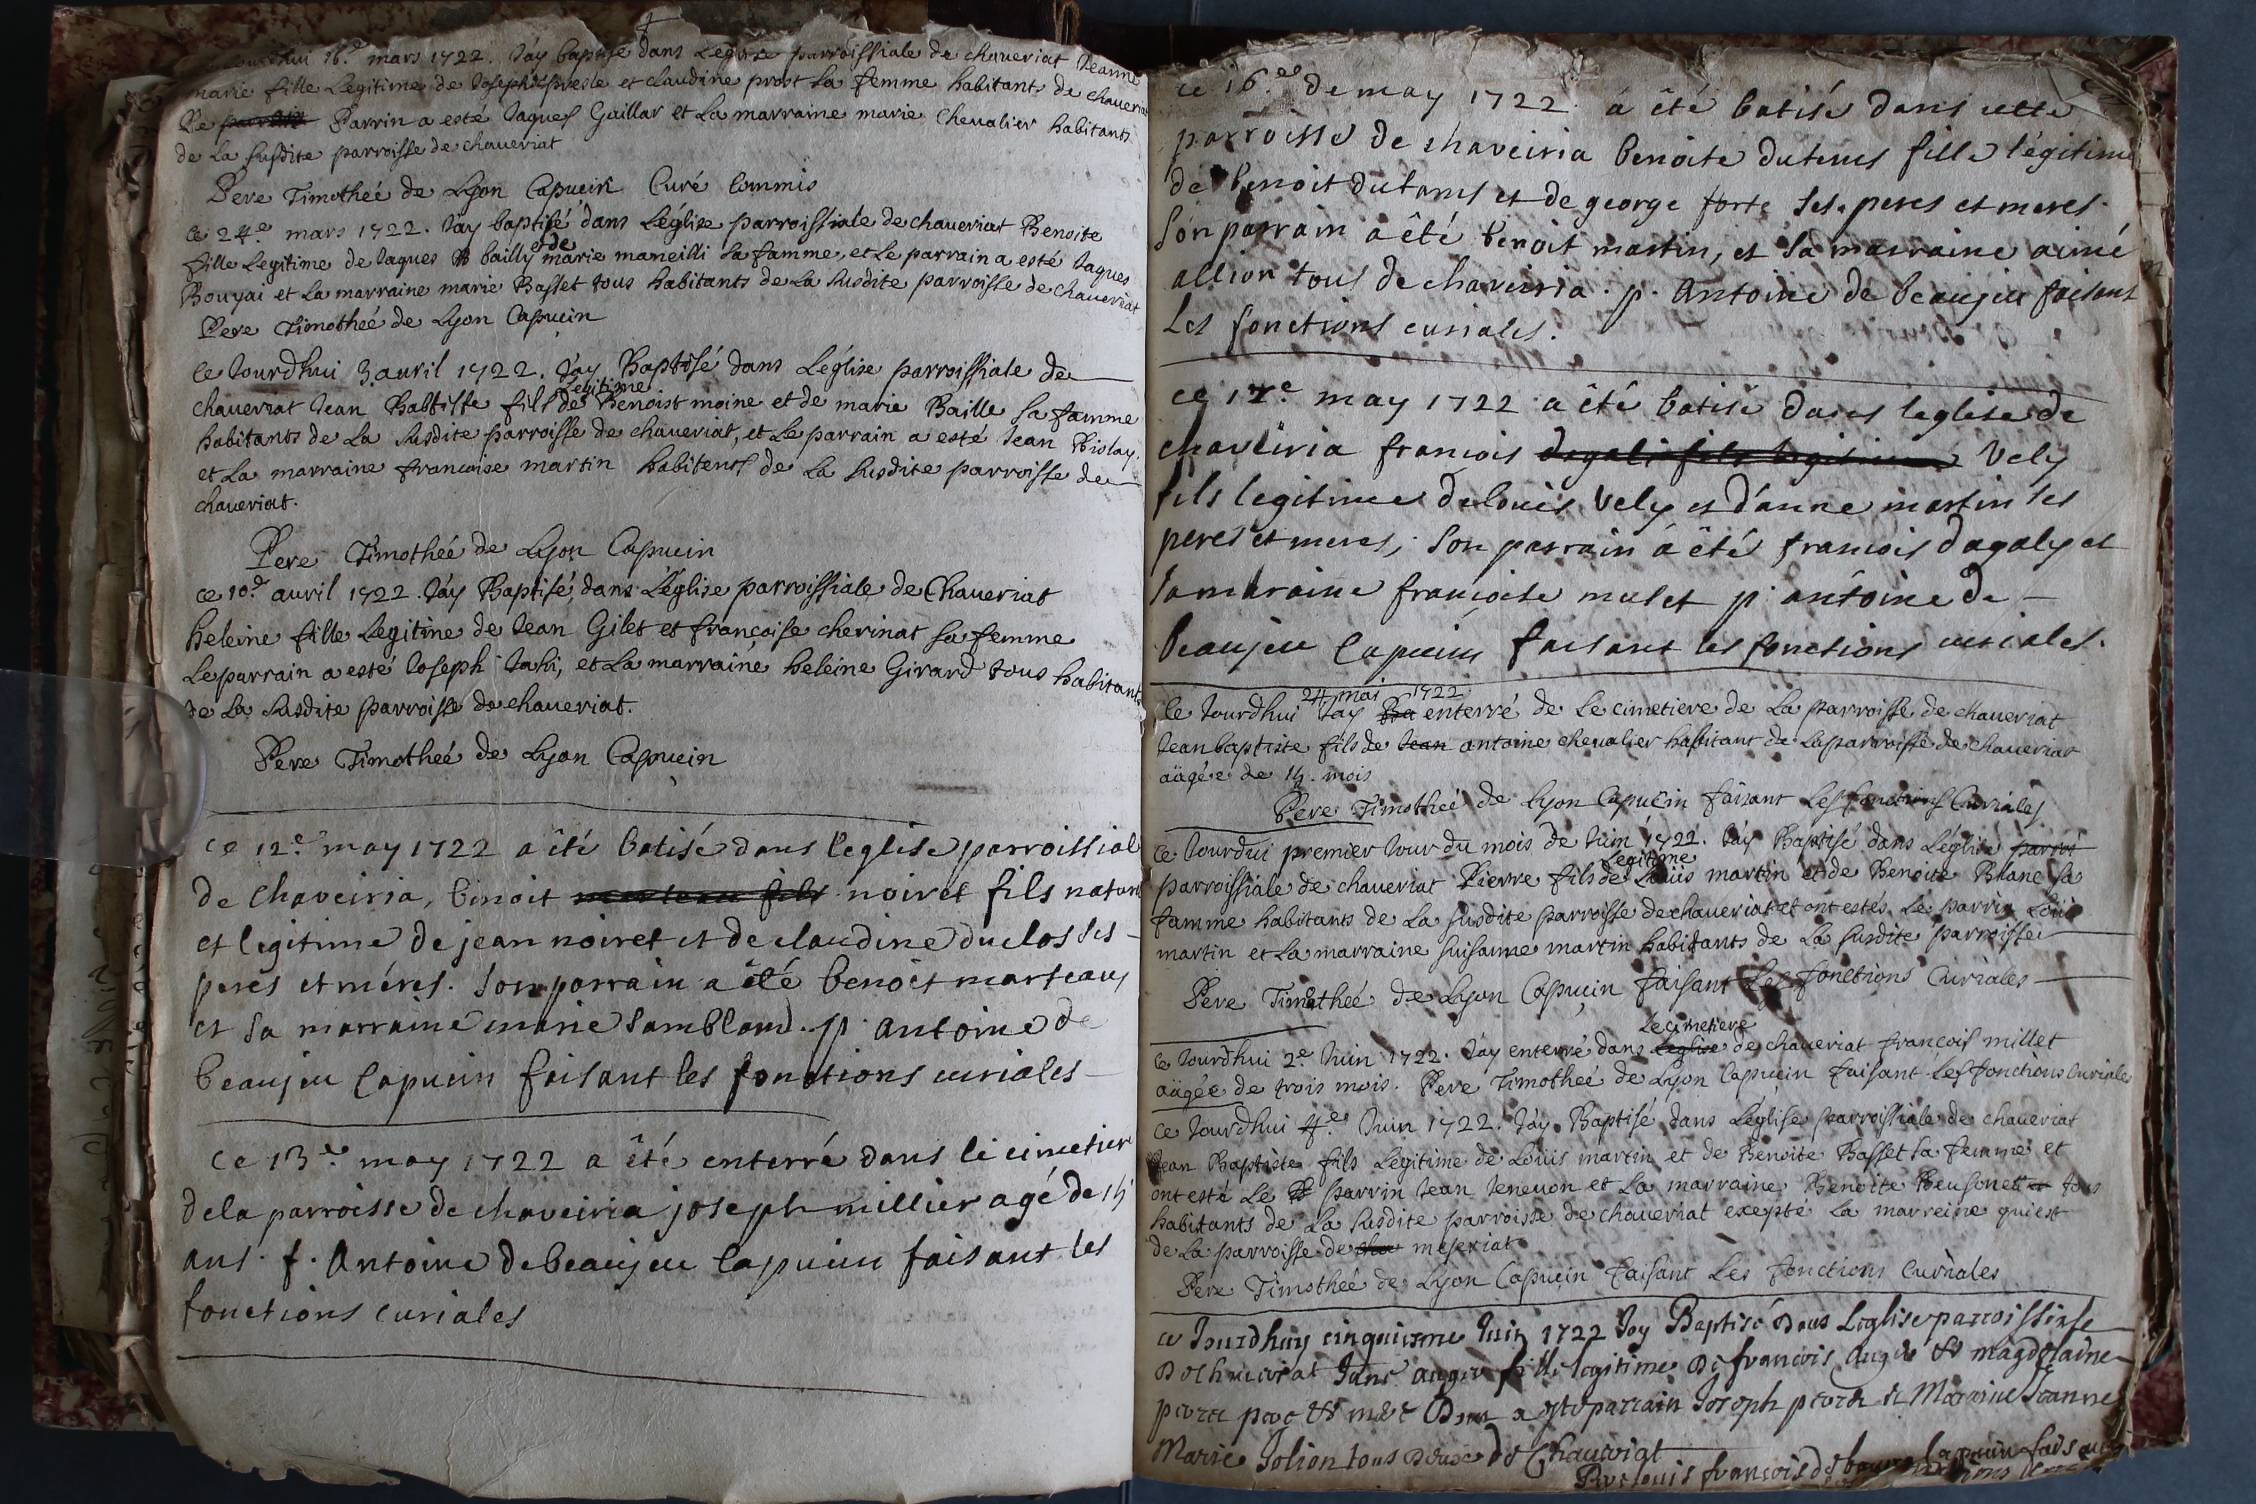 ce jourdhui 16.e mars 1722. Jay baptisé dans Leglise parroissiale de chaueriat Jeanne
marie fille Legitime de Joseph presle et claudine prost sa femme habitants de chaueriat
Le Parrin a esté Jaques Guillar et La marraine marie Cheualier habitants
de La susdite parroisse de chaueriat
Pere Timotheé de Lyon Capucin Curé Commis
ce 24.e mars 1722. Jay baptisé dans Léglise parroissiale de chaueriat Benoite
fille Legitime de Jaques bailly et de marie maneilli sa famme, et Le parrain a esté Jaques
Bouyai et La marraine marie Basset tous habitants de La susdite parroisse de chaueriat
Pere Timotheé de Lyon Capucin
Ce Jourdhui 3. auril 1722. Jay Baptisé dans Léglise parroissiale de
chaueriat Jean Babtiste fils Legitime de Benoist moine et de marie Baille sa famme
habitants de La susdite parroisse de chaueriat, et Le parrain a esté Jean Pislay.
et La marraine francoise martin habitents de La susdite parroisse de
chaueriat.
Pere Timotheé de Lyon Capucin
ce 10.e auril 1722. Jay Baptisé, dans Léglise parroissiale de Chaueriat
heleine fille Legitine de Jean Gilet et françoise cherinat sa femme
Le parrain a esté Joseph Jahi, et La marraine heleine Girard tous habitants
de La susdite parroisse de chaueriat.
Pere Timotheé de Lyon Capucin
Ce 12.e may 1722 a êté batisé dans l'eglise parroissial
de Chaveiria, binoit noiret fils natur
et legitime de jean noiret et de claudine duclos ses
peres et méres. Son parrain a êté benoit marteaux
et sa marraine marie sambland. p. antoine de
beaujeu Capucin faisant les fonctions curiales
Ce 13.e may 1722 a êté enterré dans le cimetier
de la parroisse de chaveiria joseph millier agé de 14
ans. f. Antoine de beaujeu Capucin faisant les
fonctions curiales
ce 16.e de may 1722. á êté batisé dans cette
parroisse de chaveiria benoite dutems fille légitime
de benoit dutams et de george forte ses peres et meres.
Son parrain a êté benoit martin, et sa marraine aimé
allion tous de chaveiria. p. Antoine de beaujeu faisant
Les fonctions curiales.
ce 17.e may 1722 a êté batisé dans leglise de
chaveiria francois dagali fils legitime Vely
fils legitime de louis Vely et d'anne martin ses
peres et meres; son parrain á êté francois dagaly et
sa maraine francoise mulet p. antoine de
beaujeu Capucin faisant les fonctions curiales.
Ce Jourdhui 24 mai 1722 Jay enterré de Le cimetiere de La parroisse de chaueriat
Jean baptiste fils de Jean antoine cheualier habitant de La parroisse de chaueriat
aägée de 14. mois
Pere Timotheé de Lyon Capucin faisant Les fonctions Curiales
Ce Jourdui premier Jour du mois de Juin 1722. Jay Baptisé dans Léglise parroi
parroissiale de chaueriat Pierre fils Legitime de Loüis martin et de Benoite Blanc sa
famme habitants de La susdite parroisse de chaueriat et ont estés Le parrin Loüis
martin et La marraine suisanne martin habitants de La susdite parroisse
Pere Timotheé de Lyon Capucin faisant Les fonctions Curiales
Ce Jourdhui 2.e Juin 1722. Jay enterré dans Leglise Le cimetiere de chaueriat francois millet
aägée de trois mois. Pere Timotheé de Lyon Capucin faisant Les fonctions Curiales
Ce Jourdhui 4.e Juin 1722. Jay Baptisé dans Léglise parroissiale de chaueriat
Jean Baptiste fils Legitime de Louis martin et de Benoite Basset sa femme et
ont esté Le parrin Jean Jeneuon et La marraine Benoite Beusonet tous
habitants de La susdite parroisse de chaueriat exepte La marreine qui est
de La parroisse de cha meseriat
Pere Timotheé de Lyon Capucin faisant Les fonctions Curiales
ce Jourdhuy cinquieme Juin 1722 Jay Baptisé dans Leglise parroissialle
de chaueriat Jane auger fille legitime de francois auger et magdelaine
pere et mere a esté parrain Joseph et Maraine Jeanne
Marie Jolion tous deux de Chaueriat
Pere louis francois de Capucin faisant